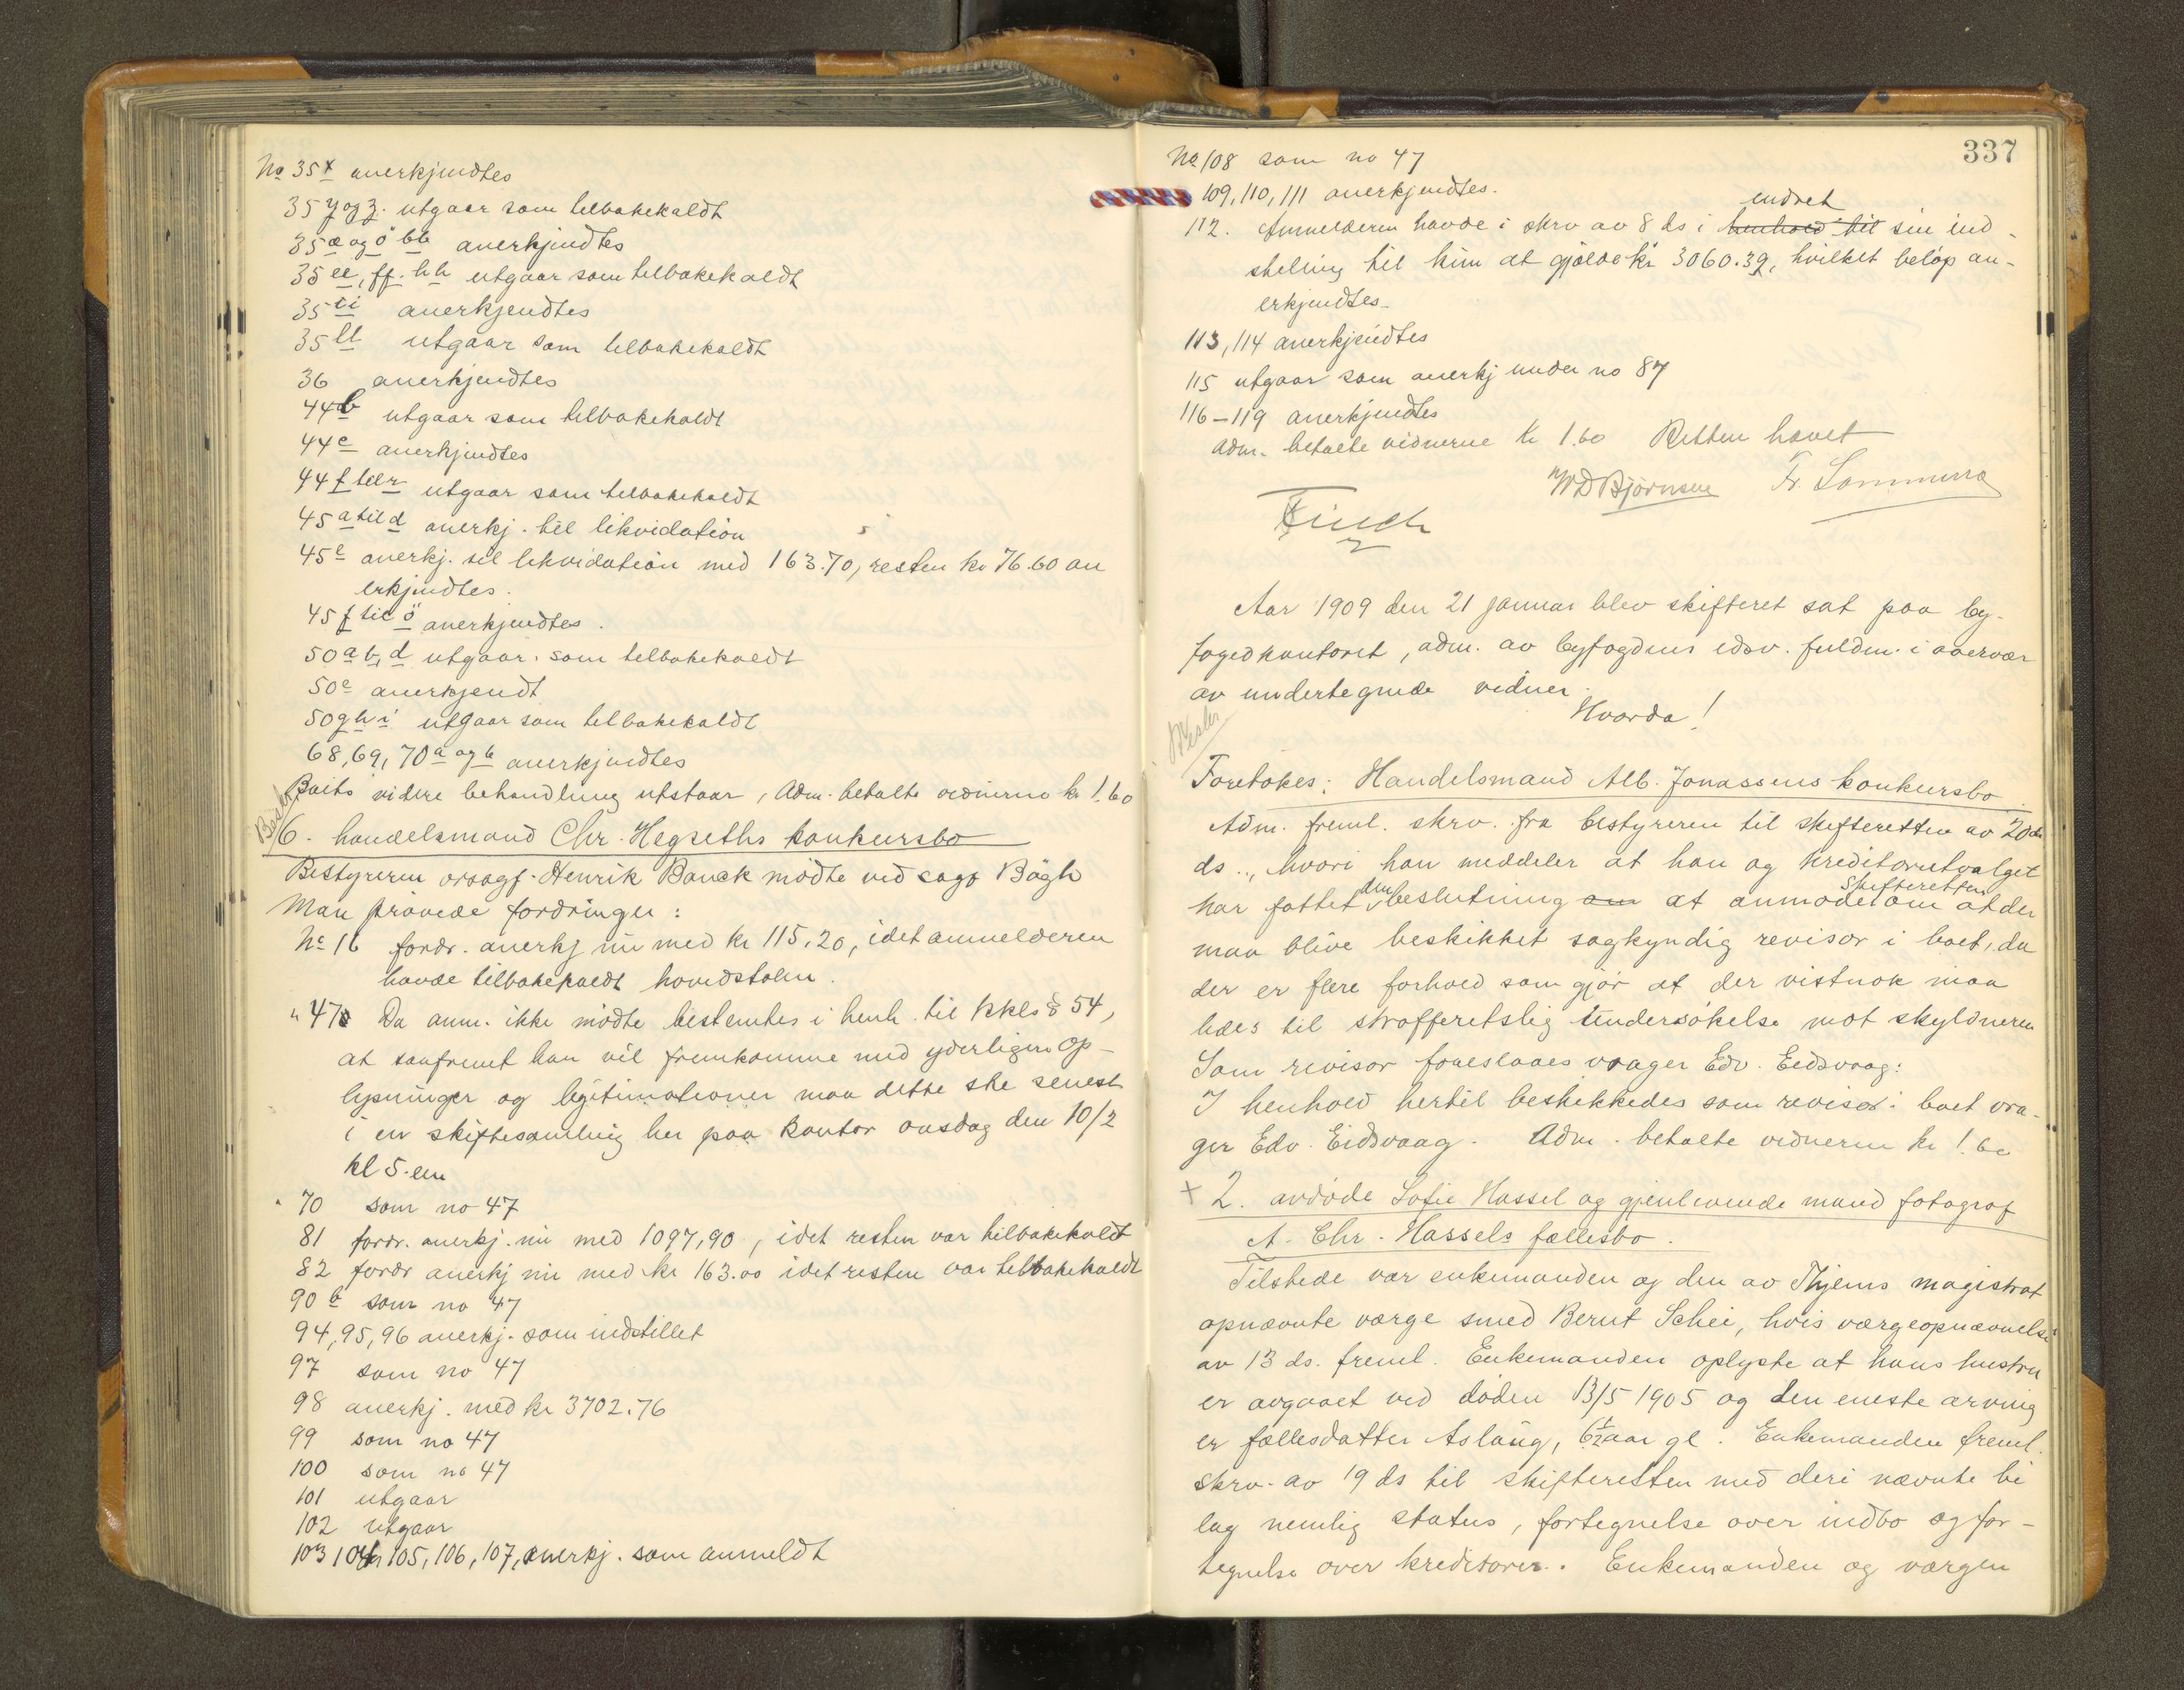 No 35x anerkjendtes
35 y og z. utgaar som tilbakekaldt
35 æ og ö bb anerkjendtes
35 ee, ff. hh utgaar som tilbakekaldt
35 ii anerkjendtes
35 ll utgaar som tilbakekaldt
36 anerkjendtes
44 b utgaar som tilbakekaldt
44 e anerkjendtes
44 f til r utgaar som tilbakekaldt
45 a til d anerkj. til likvidation
45 e anerkj. til likvidation med 163.70, resten kr 76.60 an
erkjendtes.
45 f til ö anerkjendtes.
50 a b, d utgaar. som tilbakekaldt
50 e anerkjendt
50 g h i utgaar som tilbakekaldt
68, 69, 70 a og b anerkjendtes
Boets videre behandling utstaar, Adm. betalte vidnerne kr 1.60
6. handelsmand Chr. Hegseths konkursbo
Bestyreren orsagf. Henrik Banck mödte ved sagf Bögh
Man prövede fordringer:
No 16 fordr. anerkj nu med kr 115,20, idet anmelderen
havde tilbakekaldt hovedstolen.
" 47 Da anm. ikke mödte bestemtes i henh. til kkls § 54,
at saafremt han vil fremkomme med yderligere op-
lysninger og legitimationer maa dette ske senest
i en skiftesamling her paa kontor onsdag den 10/2
kl 5. em
" 70 som no 47
81 fordr. anerkj. nu med 1097,90, idet resten var tilbakekaldt
82 fordr anerkj nu med kr 163.00 idet resten var tilbakekaldt
90 b som no 47
94, 95, 96 anerkj. som indstillet
97 som no 47
98 anerkj. med kr 3702.76
99 som no 47
100 som no 47
101 utgaar
102 utgaar
103 104, 105, 106, 107, anerkj. som anmeldt
337
No 108 som no 47
109, 110, 111 anerkjendtes.
endret
112. Anmelderen havde i skrv av 8 ds i henhold til sin ind-
stilling til kun at gjælde kr 3060.39, hvilket belöp an-
erkjendtes.
113, 114 anerkjendtes
115 utgaar som anerkj under no 87
116-119 anerkjendtes
Adm. betalte vidnerne kr 1.60 Retten hævet
Finch
Aar 1909 den 21 januar blev skifteret sat paa by-
fogedkontoret, adm. av byfogdens edsv. fuldm. i overvær
av undertegnede vidner.
Hvorda!
Foretokes: Handelsmand Alb. Jonassens konkursbo.
Adm. freml. skrv. fra bestyreren til skifteretten av 20de
ds., hvori han meddeler at han og kreditorutvalget
har fattet den beslutning om at anmode skifteretten om at der
maa blive beskikket sagkyndig revisor i boet, da
der er flere forhold som gjör at der vistnok maa
ledes til strafferetslig undersökelse mot skyldneren
Som revisor foreslaaes vrager Edv. Eidsvaag:
I henhold hertil beskikkedes som revisor i boet vra-
ger Edv. Eidsvaag. Adm. betalte vidnerne kr 1.60
+ 2. avdöde Sofie Hassel og gjenlevende mand fotograf
A. Chr. Hassels fællesbo.
Tilstede var enkemanden og den av Thjems magistrat
opnævnte værge smed Bernt Schei, hvis værgeopnævnelse
av 13 ds. freml. Enkemanden oplyste at hans hustru
er avgaaet ved döden 13/5 1905 og den eneste arving
er fællesdatter Aslaug, 6½ aar gl. Enkemanden freml.
skrv. av 19 ds til skifteretten med deri nævnte bi
lag nemlig status, fortegnelse over indbo og for-
tegnelse over kreditorer. Enkemanden og værgen